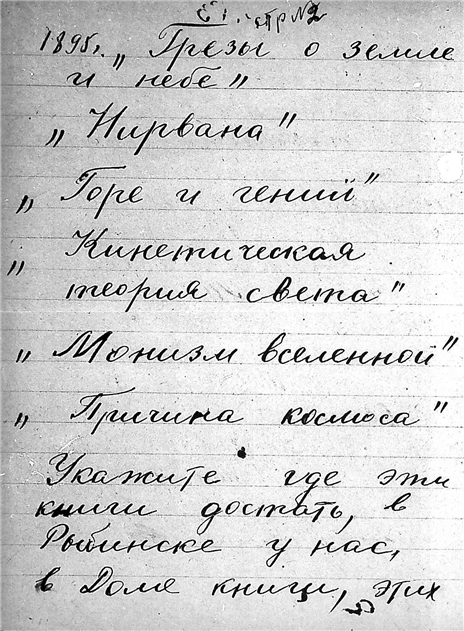 стр №2
1895г. „Грезы о земле
и небе„
„Нирвана"
„Горе и гений"
„Кинетическая
теория света"
„Монизм вселенной"
„Причина космоса"
Укажите где эти
книги достать, в
Рыбинске у нас,
в Доме книги, этих